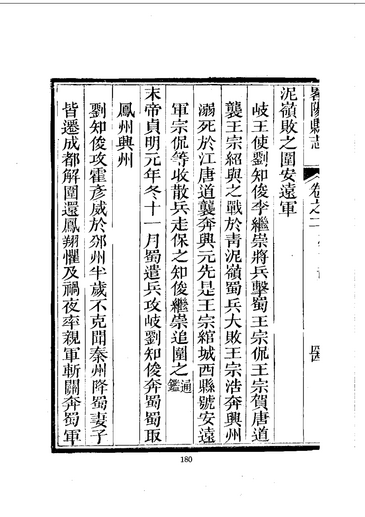 畧陽縣志
卷之二
泥嶺敗之圍安遠軍
岐王使劉知俊李繼崇將兵擊蜀王宗侃王宗賀唐道
襲王宗紹與之戰於青泥嶺蜀兵大敗王宗浩奔興州
溺死於江唐道襲奔興元先是王宗綰城西縣號安遠
軍宗侃等收散兵走保之知俊繼崇追圍之通鑑
末帝貞明元年冬十一月蜀遣兵攻岐劉知俊奔蜀蜀取
鳳州興州
劉知俊攻霍彥威於邠州半歲不克聞秦州降蜀妻子
皆遷成都解圍還鳳翔懼及禍夜率親軍斬關奔蜀軍
180